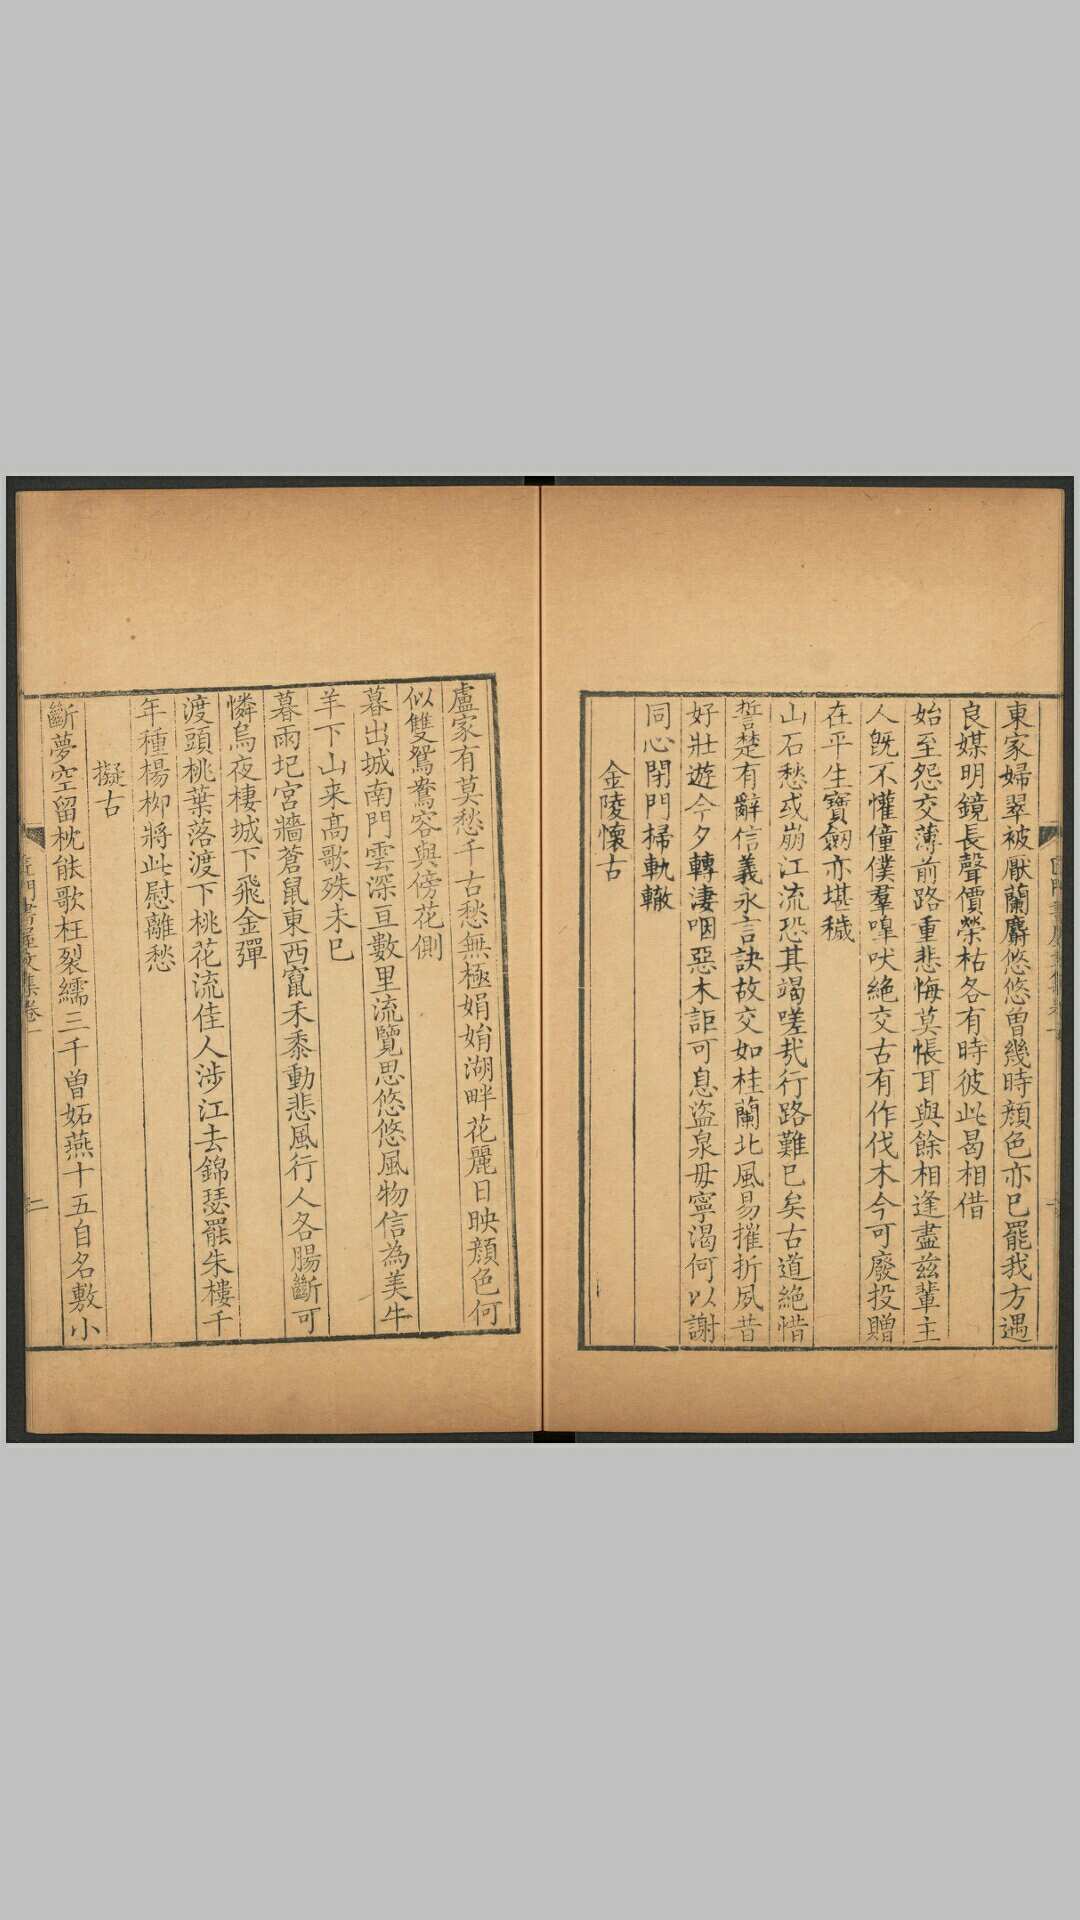 東家婦翠被厭蘭麝悠悠曾幾時顏色亦已罷我方遇
良媒明鏡長聲價榮枯各有時彼此曷相借
始至怨交薄前路重悲悔莫悵耳與餘相逢盡茲輩主
人旣不懽僮僕羣嘷吠絶交古有作伐木今可廢投贈
在平生寶劒亦堪穢
山石愁或崩江流恐其竭嗟㢤行路難已矣古道絶惜
誓楚有辭信義永言訣故交如桂蘭北風易摧折夙昔
好壯遊今夕轉淒咽惡木詎可息盜泉毋寧渴何以謝
同心閉門掃軌轍
金陵懷古
盧家有莫愁千古愁無極娟娟湖畔花麗日映顏色何
似雙鴛鴦容與傍花側
暮出城南門雲深亘數里流覽思悠悠風物信為美牛
羊下山来高歌殊未已
暮雨圮宮牆蒼鼠東西竄禾黍動悲風行人各腸斷可
憐烏夜棲城下飛金彈
渡頭桃葉落渡下桃花流佳人涉江去錦瑟罷朱樓千
年種楊柳將此慰離愁
擬古
斷夢空留枕能歌枉裂繻三千曾妬燕十五自名敷小